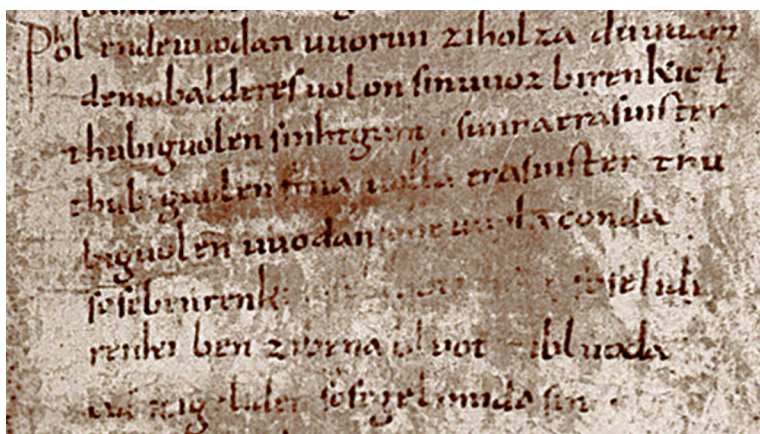 Phol endeuuodan uuorun ziholza du uuart
demobalderesuolon sinuuoz birenkict
thubiguolen sinhtgunt . sunnaerasuister
thubiguolen friia uolla erasuister thu
biguolen uuodan sohe uuola conda
sosebenrenki soselidi
renki ben zibena bluot zibluoda
lid zigeliden sosegelimida sin